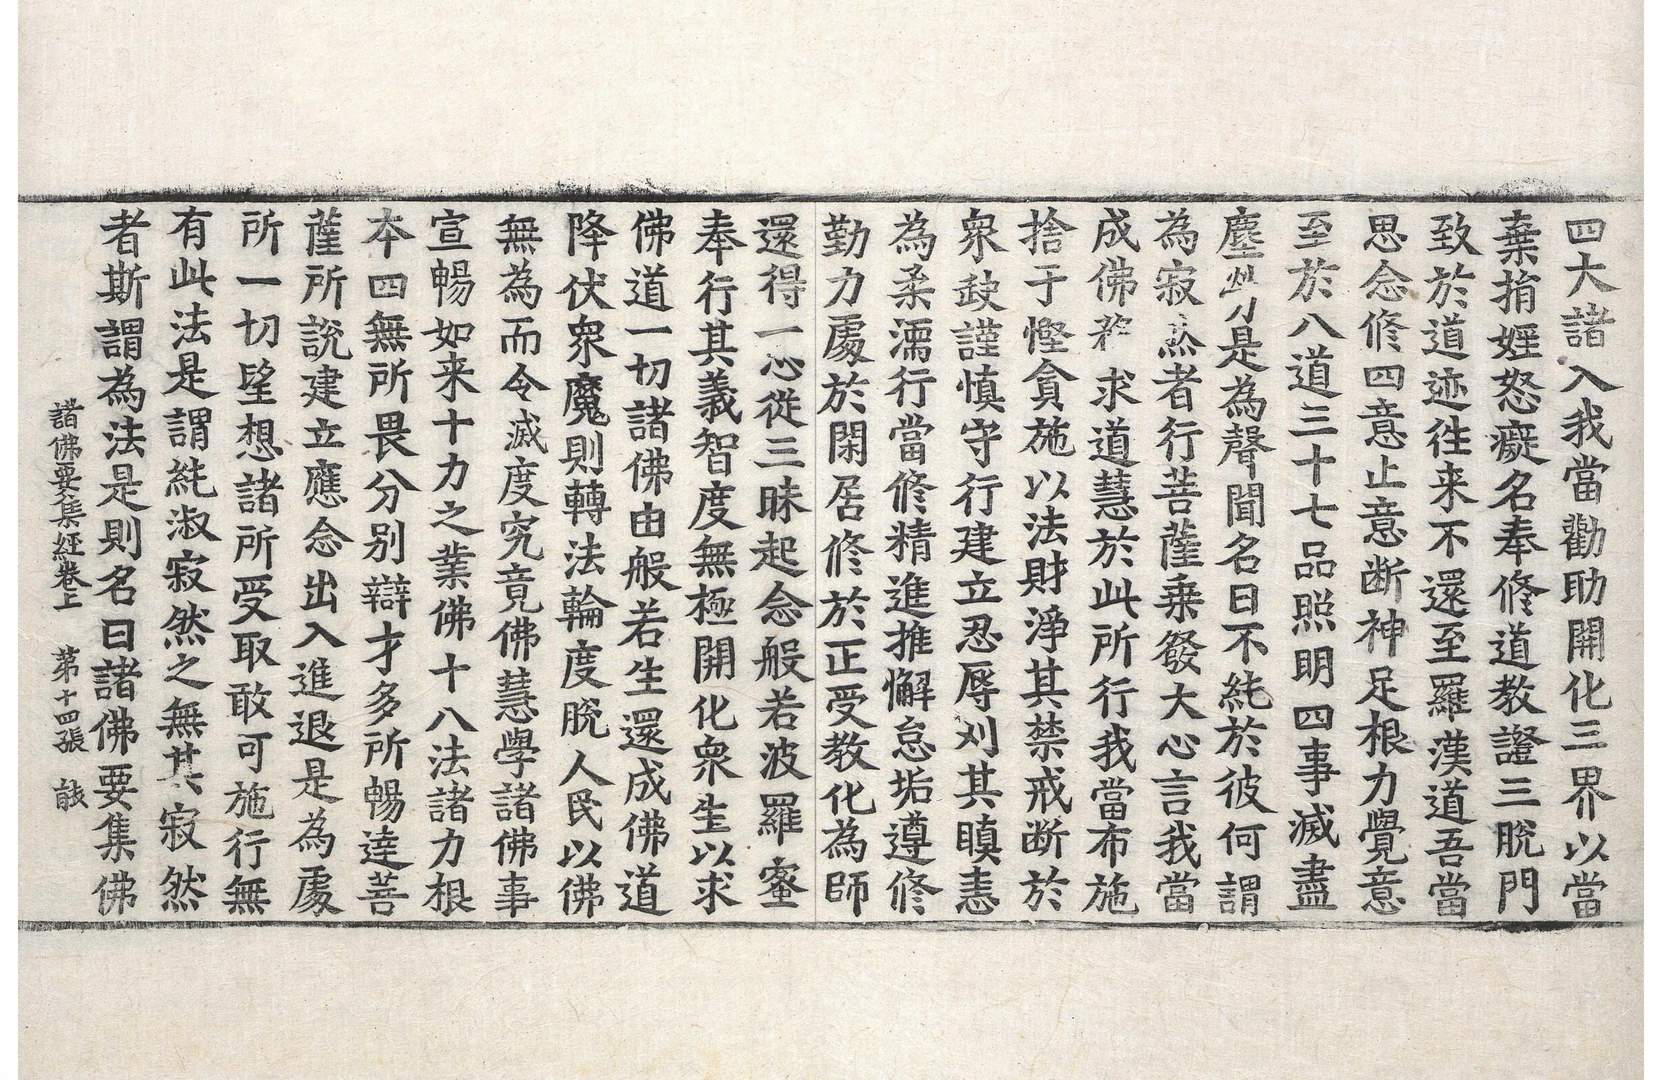 四大諸入我當勸助開化三界以當
棄捐婬怒癡名奉修道教證三脫門
致於道迹往来不還至羅漢道吾當
思念修四意止意断神足根力覺意
至於八道三十七品照明四事滅盡
塵勞是為聲聞名曰不純於彼何謂
為寂然者行菩薩乗發大心言我當
成佛若求道慧於此所行我當布施
捨于慳貪施以法財淨其禁戒断於
衆缺謹慎守行建立忍辱刈其瞋恚
為柔濡行當修精進推懈怠垢遵修
勤力處於閑居修於正受教化為師
還得一心從三昧起念般若波羅蜜
奉行其義智度無極開化衆生以求
佛道一切諸佛由般若生還成佛道
降伏衆魔則轉法輪度脫人民以佛
無為而令滅度究竟佛慧學諸佛事
宣暢如来十力之業佛十八法諸力根
本四無所畏分别辯才多所暢達菩
薩所說建立應念出入進退是為處
所一切望想諸所受取敢可施行無
有此法是謂純淑寂然之無其寂然
者斯謂為法是則名曰諸佛要集佛
諸佛要集經卷上 第十四張 能